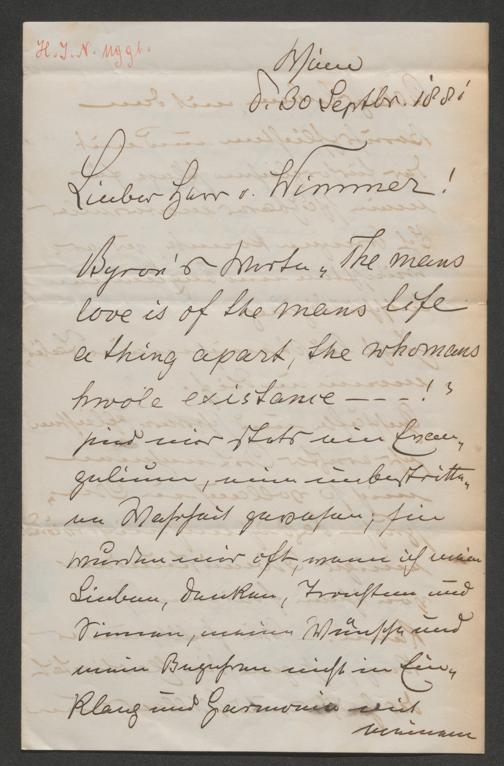 H.I.N. 11991.
Wien
d. 30 Septbr. 1881
Lieber Herr v. Wimmer!
Byron's Worte „The mans
love is of the mans life
a thing apart, the whomans
hwole existance – – – !"
sind mir stets ein Evan„
gelium, eine unbestritte„
ne Wahrheit gewesen; sie
wurden mir oft, wenn ich mein
Lieben, Denken, Trachten und
Sinnen, meine Wünsche und
mein Begehren nicht in Ein„
klang und Harmonie mit
meinem